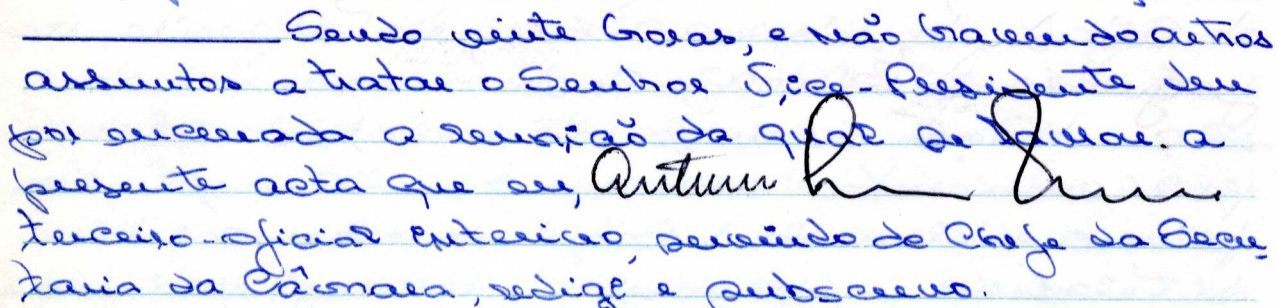 Sendo vinte horas, e não havendo outros
assuntos a tratar o Senhor Vice-Presidente deu
por encerrada a reunião da qual se lavrou a
presente acta que eu,
terceiro-oficial interino, servindo de Chefe da Secre-
taria da Câmara, redigi e subscrevo.